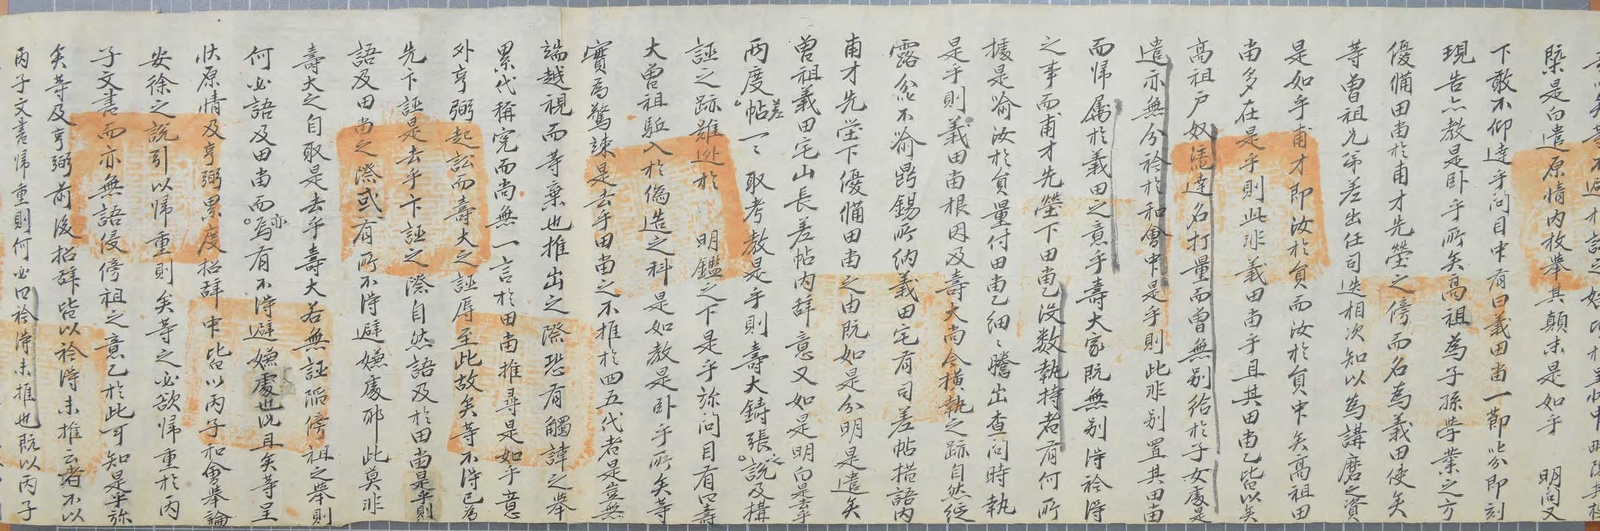 槩是白遣原情內枚擧其顚末是如乎 明問又
下敢不仰達乎問目中有曰義田畓一節叱分卽刻
現告亦敎是臥乎所矣高祖爲子孫學業之方
優備田畓於甫才先塋之傍而名爲義田使矣
等曾祖兄弟差出任司迭相次知以爲講磨之資
是如乎甫才卽汝於負而汝於負中矣高祖田
畓多在是乎則此非義田畓乎且其田畓乙皆以矣
高祖戶奴達名打量而曾無別給於子女處是
遣亦無分衿於和會中是乎則此非別置其田畓
而歸屬於義田之意乎壽大家旣無別得衿得
之事而甫才先塋下田畓乙沒數執持者有何所
據是喩汝於負量付田畓乙細細謄出查問時執
是乎則義田畓根因及壽大尙今橫執之跡自然綻
露叱分不喩鼎錫所納義田宅有司差帖措語內
甫才先塋下優備田畓之由旣如是分明是遣矣
曾祖義田宅山長差帖內辭意又如是明白是乎
兩度帖一一取考敎是乎則壽大鑄張之說及搆
誣之跡難逃於 明鑑之下是乎旀問目有曰壽
大曾祖驅入於僞造之科是如敎是臥乎所矣等
實爲驚竦是去乎田畓之不推於四五代者是豈無
端越視而等棄也推出之際恐有觸諱之擧
累代稱寃而尙無一言於田畓推尋是如乎意
外亨弼起訟而壽大之誣辱至此故矣等不得已爲
先卞誣是去乎卞誣之際自然語及於田畓是乎則
語及田畓之際或有所不得避嫌處耶此莫非
壽大之自取是去乎壽大若無誣陷傍祖之擧則
何必語及田畓而亦有不得避嫌處也況且矣等呈
狀原情及亨弼累度招辭中皆以丙子和會擧論
安徐之說引以歸重則矣等之必欲歸重於丙
子文書而亦無語侵傍祖之意乙於此可知是乎旀
矣等及亨弼前後招辭皆以衿得未推云者不以
丙子文書歸重則何必曰衿得未推也旣以丙子